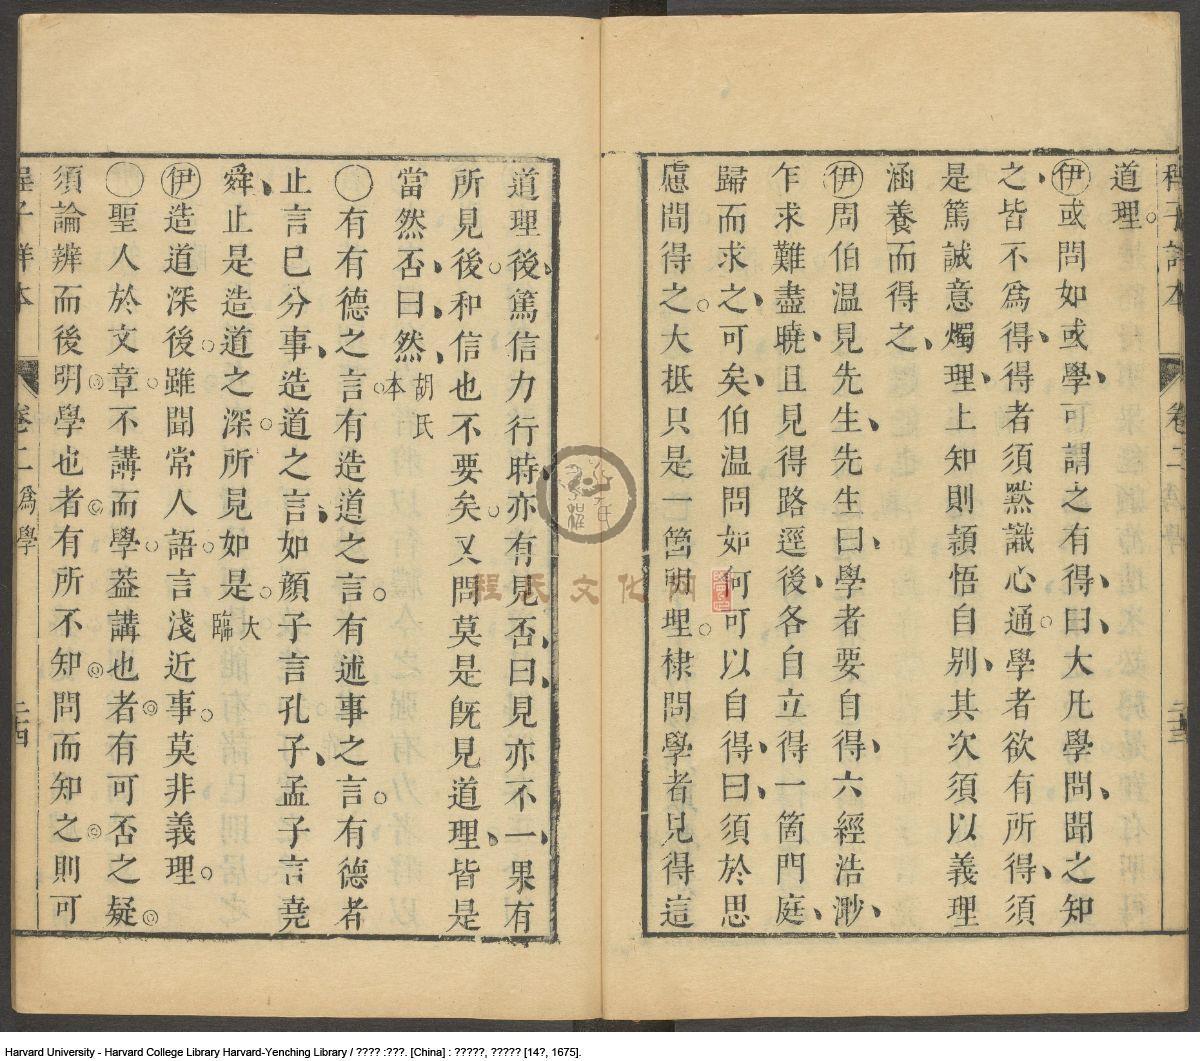 程子詳本
卷二爲學
二十三
道理
伊或問如或學可謂之有得曰大凡學問聞之知
之皆不爲得得者須黙識心通學者欲有所得須
是篤誠意燭理上知則頴悟自别其次須以義理
涵養而得之
伊周伯温見先生先生曰學者要自得六經浩渺
乍求難盡曉且見得路逕後各自立得一箇門庭
歸而求之可矣伯温問如何可以自得曰須於思
慮間得之大抵只是一箇明理棣問學者見得這
道理後篤信力行時亦有見否曰見亦不一果有
所見後和信也不要矣又問莫是旣見道理皆是
當然否曰然胡氏本
有有德之言有造道之言有述事之言有德者
止言己分事造道之言如顔子言孔子孟子言堯
舜止是造道之深所見如是大臨
伊造道深後雖聞常人語言淺近事莫非義理
聖人於文章不講而學葢講也者有可否之疑
須論辨而後明學也者有所不知問而知之則可
程子詳本
卷二爲學
二十四
程氏文化網
Harvard University - Harvard College Library Harvard-Yenching Library / ???? :???. [China] : ?????, ????? [14?, 1675].